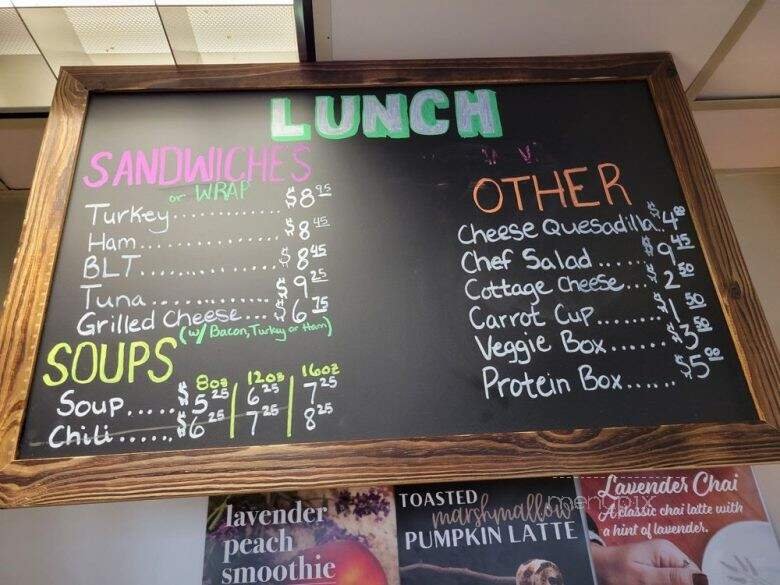 LUNCH
SANDWICHES
or WRAP
Turkey.......... $8 95
Ham.......... $8 45
BLT.......... $8 45
Tuna.......... $9 25
Grilled Cheese... $6 75
(w/ Bacon, Turkey or Ham)
SOUPS
8oz 12oz 16oz
Soup..... $5 25 6 25 7 25
Chili...... $6 25 7 25 8 25
OTHER
Cheese Quesadilla. $4 00
Chef Salad...... $9 45
Cottage Cheese... $2 50
Carrot Cup........ $1 50
Veggie Box....... $3 50
Protein Box...... $5 00
lavender
peach
smoothie
TOASTED
marshmallow
PUMPKIN LATTE
Lavender Chai
A classic chai latte with
a hint of lavender.
menupix